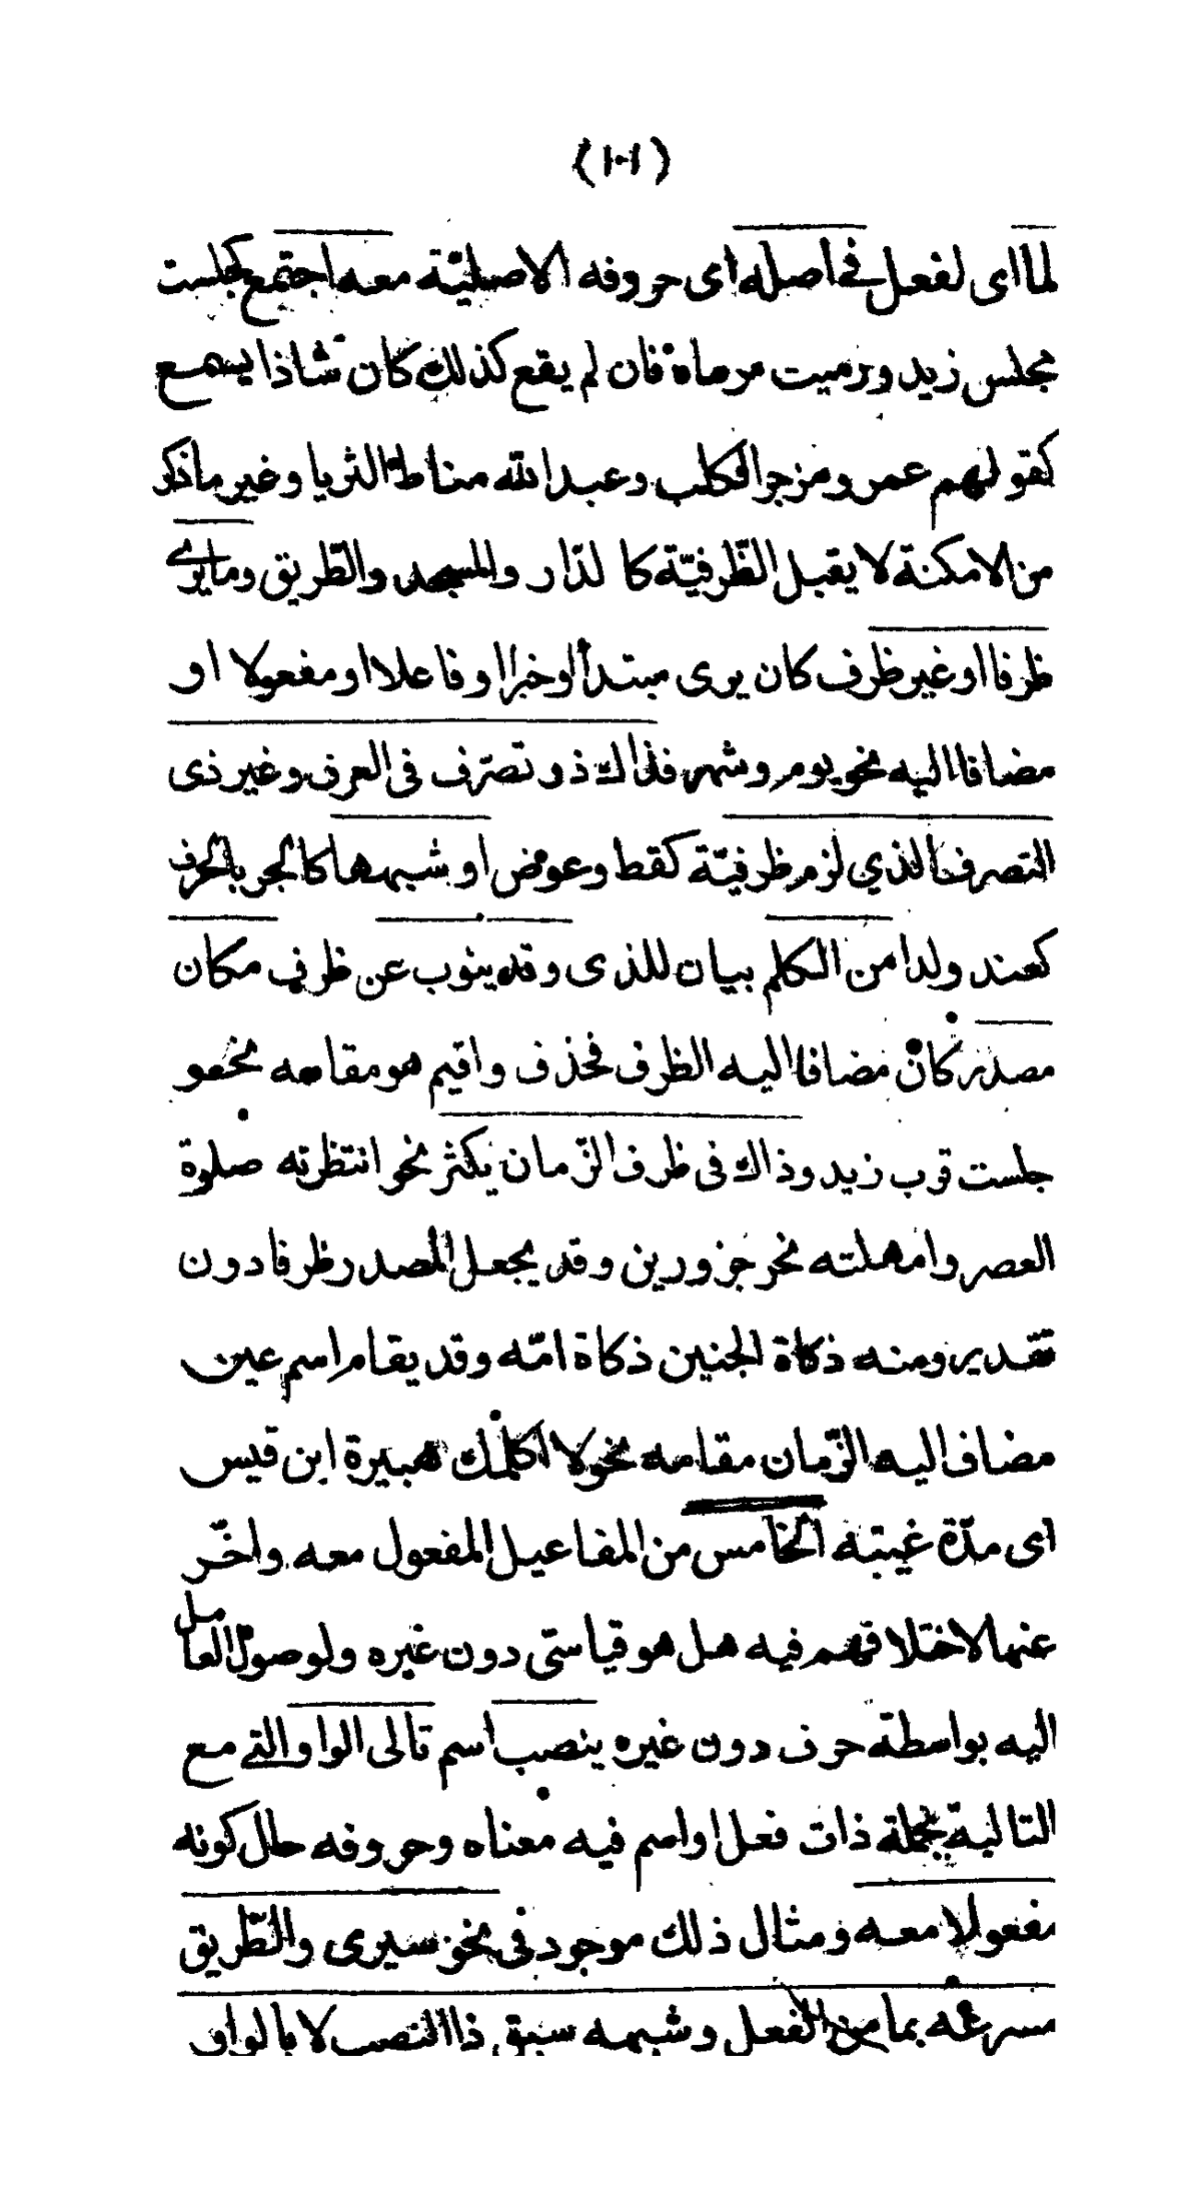 (١٠١)
لما اى لفعل في اصله اى حروفه الاصليّة معه اجتمع كجلست
مجلس زيد ورميت مرماه فان لم يقع كذلك كان شاذا يسمع
كقولهم عمرو مزجر الكلب وعبد الله مناط الثريا وغير ما ذكر
من الامكنة لا يقبل الظّرفيّة كا لدّار والمسجد والطّريق وما يرے
ظرفا او غير ظرف كان يرى مبتدأ او خبرا او فاعلا او مفعولا او
مضافا اليه نحو يوم وشهر فذاك ذو تصرّف فى العرف وغير ذى
التصرف الذي لزم ظرفيّة كقط وعوض او شبهها كالجر بالحرف
كعند ولدا من الكلم بيان للذى وقد ينوب عن ظرف مكان
مصدر كان مضافا اليه الظرف فحذف واقيم هو مقامه نحو
جلست قرب زيد وذاك فى ظرف الزّمان يكثر نحو انتظرته صلوة
العصر وامهلته نحر جزورين وقد يجعل المصدر ظرفا دون
تقدير ومنه ذكاة الجنين ذكاة امّه وقد يقام اسم عين
مضاف اليه الزّمان مقامه نحو لا اكلمك هبيرة ابن قيس
اى مدّة غيبته الخامس من المفاعيل المفعول معه واخّر
عنها لاختلافهم فيه هل هو قياسىّ دون غيره ولوصول العامل
اليه بواسطة حرف دون غيره ينصب اسم تالى الواو التے مع
التالية بجملة ذات فعل او اسم فيه معناه وحروفه حال كونه
مفعولا معه ومثال ذلك موجود فى نحو سيرى والطّريق
مسرعه بما من الفعل وشبهه سبق ذا النصب لا بالواو